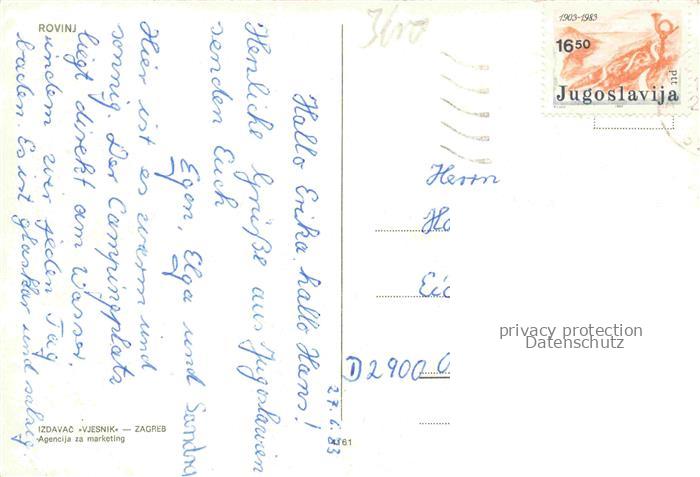 ROVINJ
3/200
1903-1983
16 50
Jugoslavija
ptt
27.6.83
Hallo Erika, hallo Hans!
Herzliche Grüße aus Jugoslawien
senden Euch
Egon, Elga und Sandra
Hier ist es warm und
sonnig. Der Campingplatz
liegt direkt am Wasser,
indem wir jeden Tag
baden. Es ist glasklar und salzig.
Herrn
Ha
Eic
D 2900 O
privacy protection
Datenschutz
IZDAVAČ »VJESNIK« — ZAGREB
Agencija za marketing
61